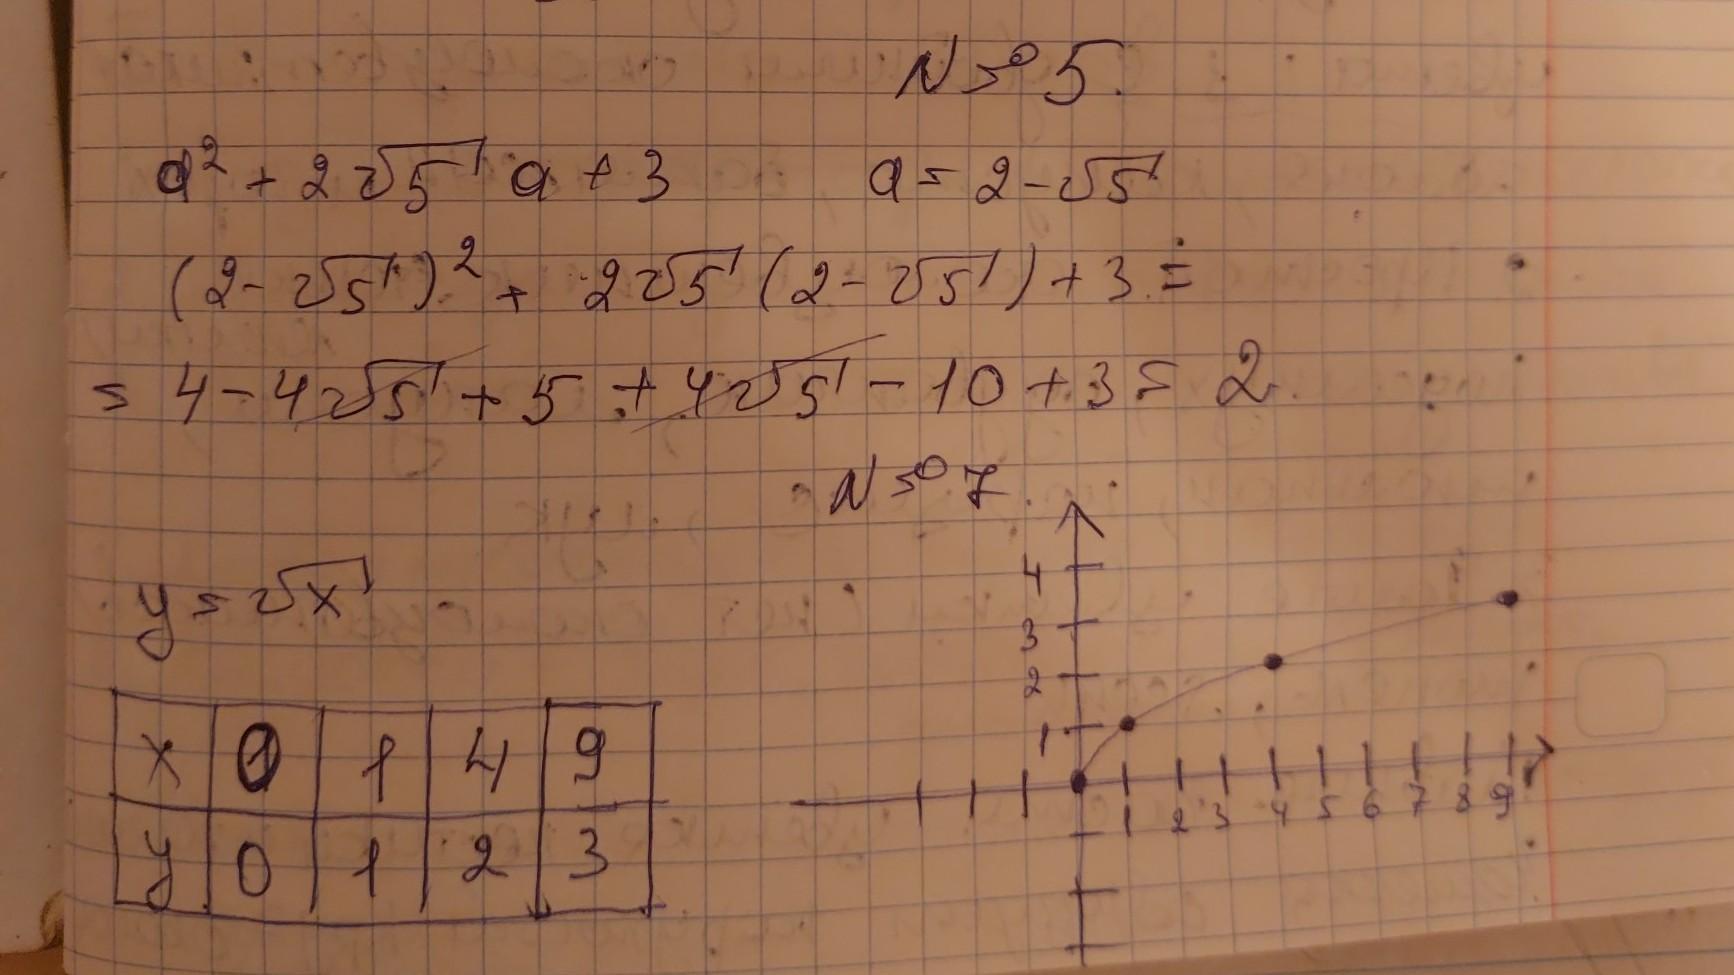 №5.
a² + 2√5 a + 3 a = 2 - √5
(2 - √5)² + 2√5 (2 - √5) + 3 =
= 4 - 4√5 + 5 + 4√5 - 10 + 3 = 2.
№7
y = √x
x 0 1 4 9
y 0 1 2 3
4
3
2
1
1 2 3 4 5 6 7 8 9